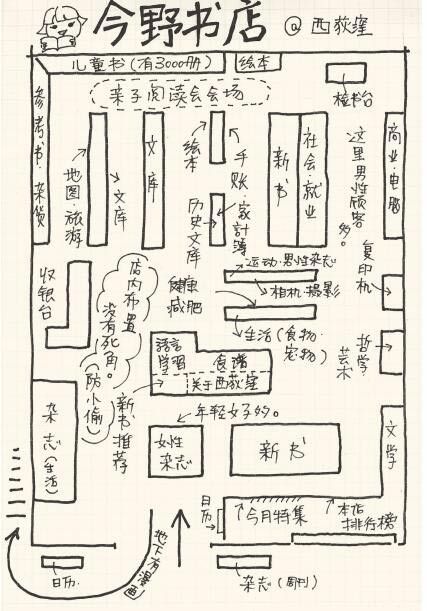 今野书店 @西荻窪
儿童书(有3000册)
绘本
检书台
亲子阅读会会场
参考书·杂货
地图·旅游
文库
文库
绘本
手账·家計簿
历史文库
新书
社会·就业
这里男性顾客多。
商业·电脑
复印机
收银台
店内布置没有死角。(防小偷)
健康
減肥
运动·男性杂志
相机·摄影
生活(食物·宠物)
哲学·艺术
語言
学習
食谱
关于西荻窪
新书推荐
年轻女子多。
杂志(生活)
女性
杂志
新书
文学
日历
今月特集
本店
排行榜
地下有漫画
日历
杂志(周刊)